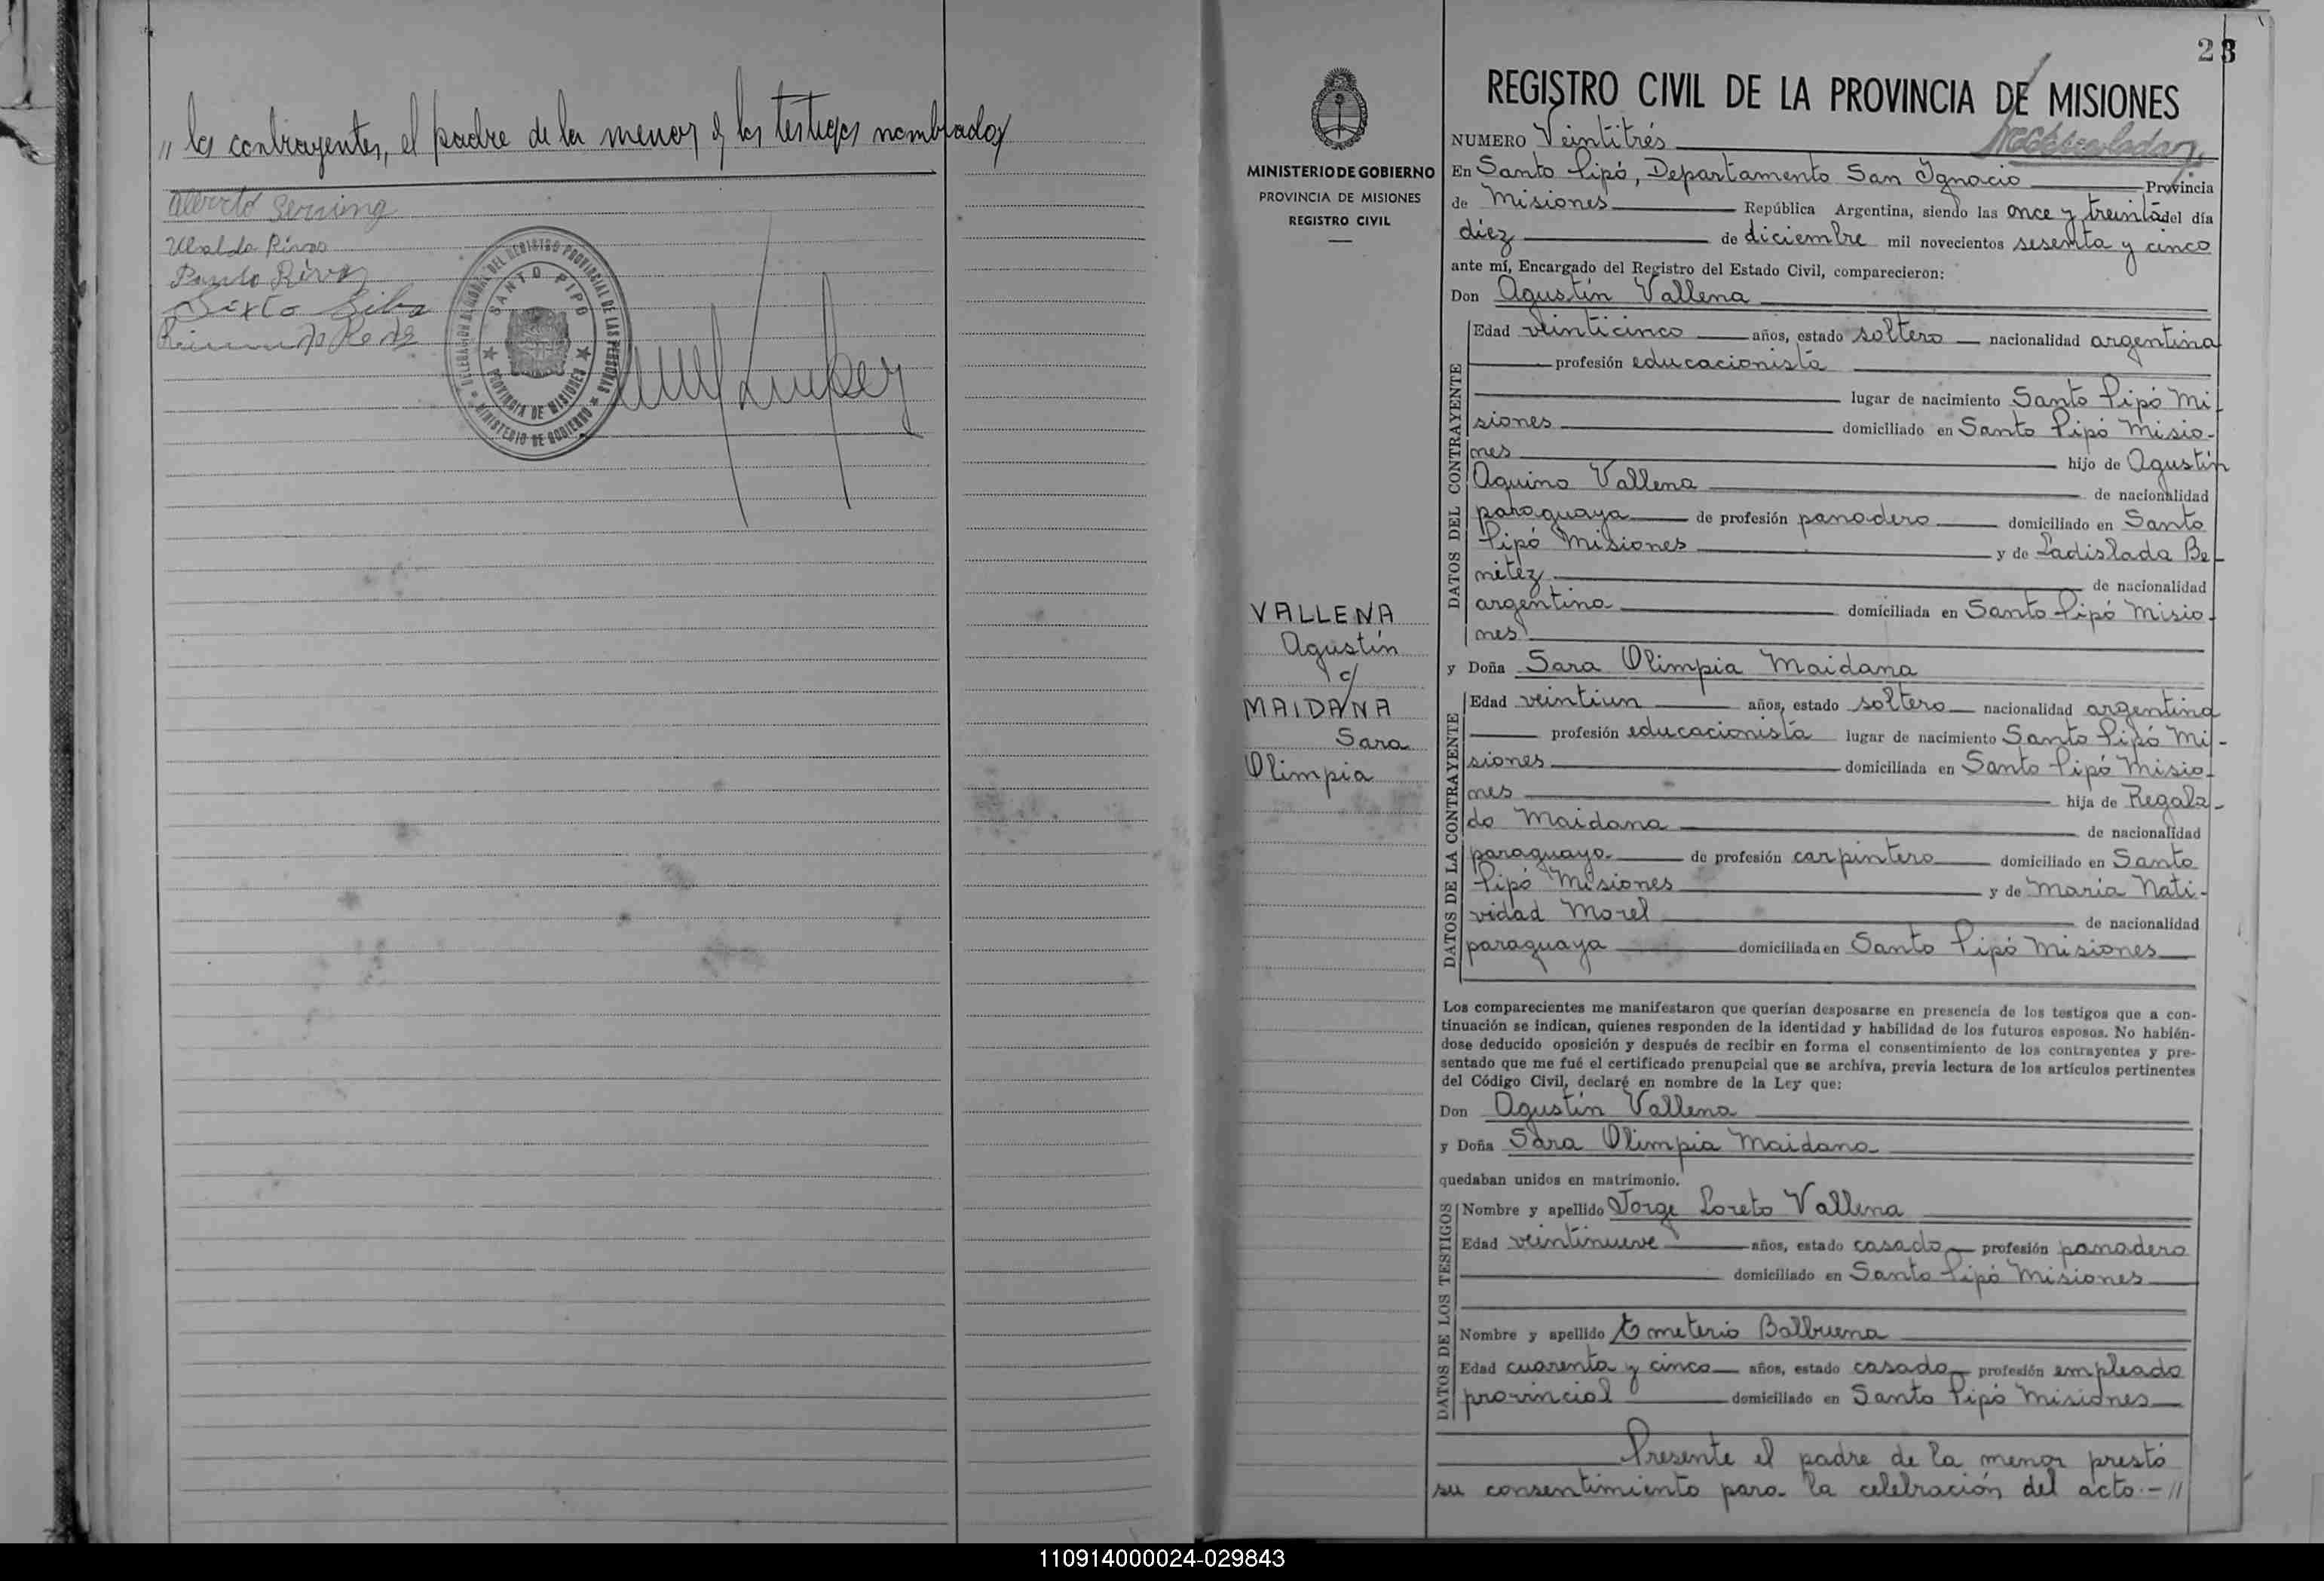 " los contrayentes, el padre de la menor y los testigos nombrados
Alberto
Ubaldo Rivas
Rivas
Sixto
DELEGACION SECCIONAL DEL REGISTRO PROVINCIAL DE LAS PERSONAS
MINISTERIO DE GOBIERNO
SANTO PIPO
PROVINCIA DE MISIONES
23
MINISTERIO DE GOBIERNO
PROVINCIA DE MISIONES
REGISTRO CIVIL
VALLENA
Agustín
c/
MAIDANA
Sara
Olimpia
REGISTRO CIVIL DE LA PROVINCIA DE MISIONES
NUMERO Veintitrés
En Santo Pipó, Departamento San Ignacio Provincia
de Misiones República Argentina, siendo las once y treinta del día
diez de diciembre mil novecientos sesenta y cinco
ante mí, Encargado del Registro del Estado Civil, comparecieron:
Don Agustín Vallena
DATOS DEL CONTRAYENTE
Edad veinticinco años, estado soltero nacionalidad argentina
profesión educacionista
lugar de nacimiento Santo Pipó Mi-
siones domiciliado en Santo Pipó Misio-
nes hijo de Agustín
Aquino Vallena de nacionalidad
paraguaya de profesión panadero domiciliado en Santo
Pipó Misiones y de Ladislada Be-
nitez de nacionalidad
argentina domiciliada en Santo Pipó Misio-
nes
y Doña Sara Olimpia Maidana
DATOS DE LA CONTRAYENTE
Edad veintiun años, estado soltero nacionalidad argentina
profesión educacionista lugar de nacimiento Santo Pipó Mi-
siones domiciliada en Santo Pipó Misio-
nes hija de Regala-
do Maidana de nacionalidad
paraguaya de profesión carpintero domiciliado en Santo
Pipó Misiones y de María Nati-
vidad Morel de nacionalidad
paraguaya domiciliada en Santo Pipó Misiones
Los comparecientes me manifestaron que querían desposarse en presencia de los testigos que a con-
tinuación se indican, quienes responden de la identidad y habilidad de los futuros esposos. No habién-
dose deducido oposición y después de recibir en forma el consentimiento de los contrayentes y pre-
sentado que me fué el certificado prenupcial que se archiva, previa lectura de los artículos pertinentes
del Código Civil, declaré en nombre de la Ley que:
Don Agustín Vallena
y Doña Sara Olimpia Maidana
quedaban unidos en matrimonio.
DATOS DE LOS TESTIGOS
Nombre y apellido Jorge Loreto Vallena
Edad veintinueve años, estado casado profesión panadero
domiciliado en Santo Pipó Misiones
Nombre y apellido Emeterio Balbuena
Edad cuarenta y cinco años, estado casado profesión empleado
provincial domiciliado en Santo Pipó Misiones
Presente el padre de la menor prestó
su consentimiento para la celebración del acto.-//
110914000024-029843